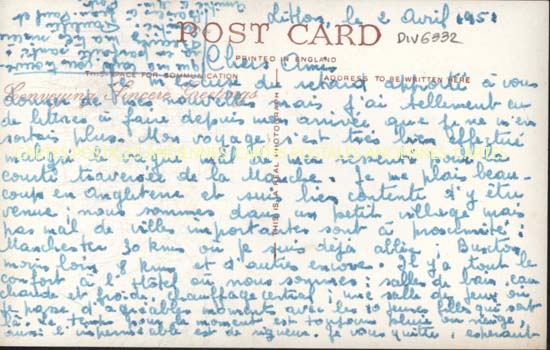 Litton, le 2 Avril 1951
POST CARD
DIV6332
PRINTED IN ENGLAND
THIS SPACE FOR COMMUNICATION
ADDRESS TO BE WRITTEN HERE
Conveying Sincere Greetings
THIS IS A REAL PHOTOGRAPH
Chers Amis
Je m'excuse du retard apporté à vous
donner de mes nouvelles mais j'ai tellement eu
de lettres à faire depuis mon arrivée que je ne m'en
sortais plus. Mon voyage s'est très bien effectué
malgré
mal de mer ressenti pour la
courte traversée de la Manche. Je me plais beau-
coup en Angleterre et suis bien contente d'y être
venue; nous sommes dans un petit village mais
pas mal de villes importantes sont à proximité:
Manchester 30 kms où je suis déjà allée; Buxton
moins loin 8 kms et d'autres encore. Il y a tout le
confort à l'Hôtel où nous sommes: salles de bain, eau
chaude et froide, chauffage central; une salle de jeux où
je passe d'agréables moments avec les 10 jeunes filles qui sont
là. Le temps pour le moment est toujours pluie ou neige,
aussi l'imperméable est de rigueur. Je vous quitte, espérant